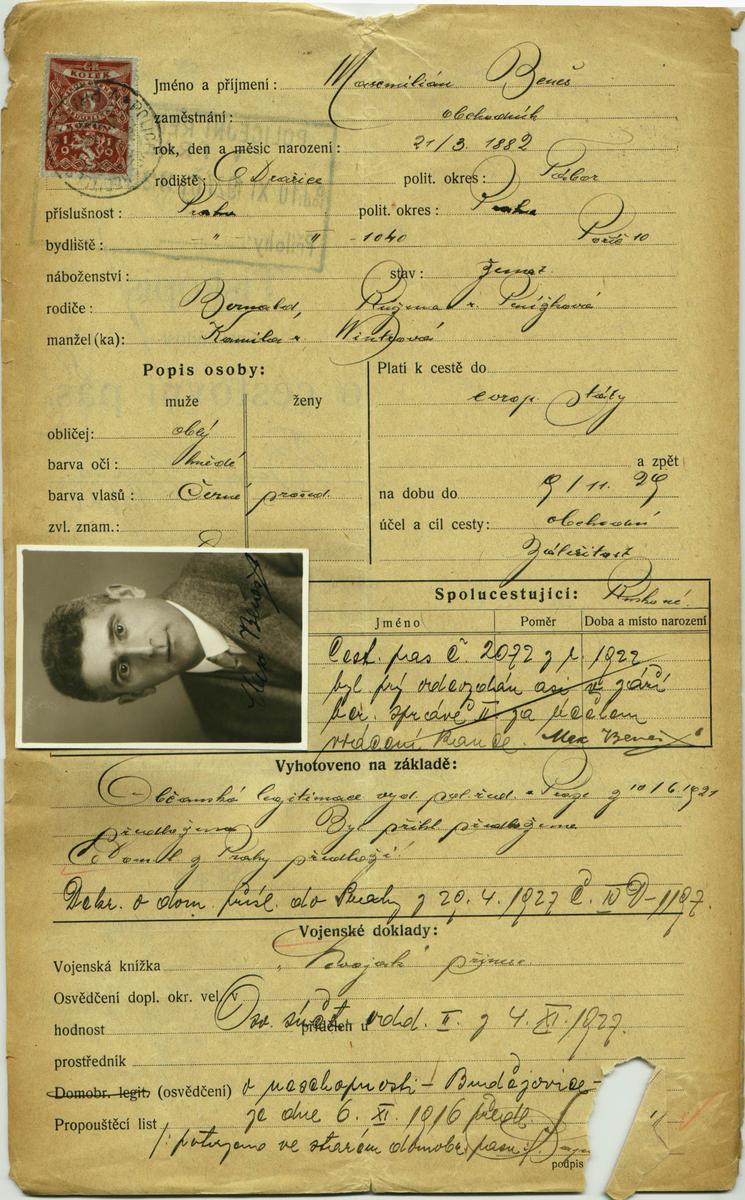 Č.S.
KOLEK
Jméno a příjmení: Maxmilián Beneš
zaměstnání: obchodník
rok, den a měsíc narození: 21/3. 1882
rodiště: Dražice polit. okres: Tábor
příslušnost: Praha polit. okres: Praha
bydliště: " " -1040 Poříč 10
náboženství: stav: ženat.
rodiče: Bernard, Růžena r.
manžel (ka): Kamila r.
Popis osoby: Platí k cestě do
muže ženy evrop. státy
obličej: obl.
barva očí: hnědé a zpět
barva vlasů: Černé prošed. na dobu do 9/11. 29
zvl. znam.: účel a cíl cesty: obchodní
Záležitost
Max Beneš
Spolucestující:
Jméno Poměr Doba a místo narození
Cest. pas č. 2072 z r. 1922
byl prý odevzdán asi v září
ber. správě II za účelem
vrácení kauce. Max Beneš
Vyhotoveno na základě:
Občanská legitimace vyd. pol. řed. v Praze z 10/6. 1921
předložena Byl příbl. předložena
Dom. l. z Prahy předloží!
Dekr. o dom. přísl. do Prahy z 29. 4. 1927 Č. IV D-1197.
Vojenské doklady:
Vojenská knížka "Nevoják" přinese
Osvědčení dopl. okr. vel. v
hodnost Osv. přidělen u odd. II. z 4. XI. 1927.
prostředník
Domobr. legit. (osvědčení) o neschopnosti - Budějovice -
Propouštěcí list ze dne 6. XI. 1916 předl.
potvrzeno ve starém domobr. pasu
podpis